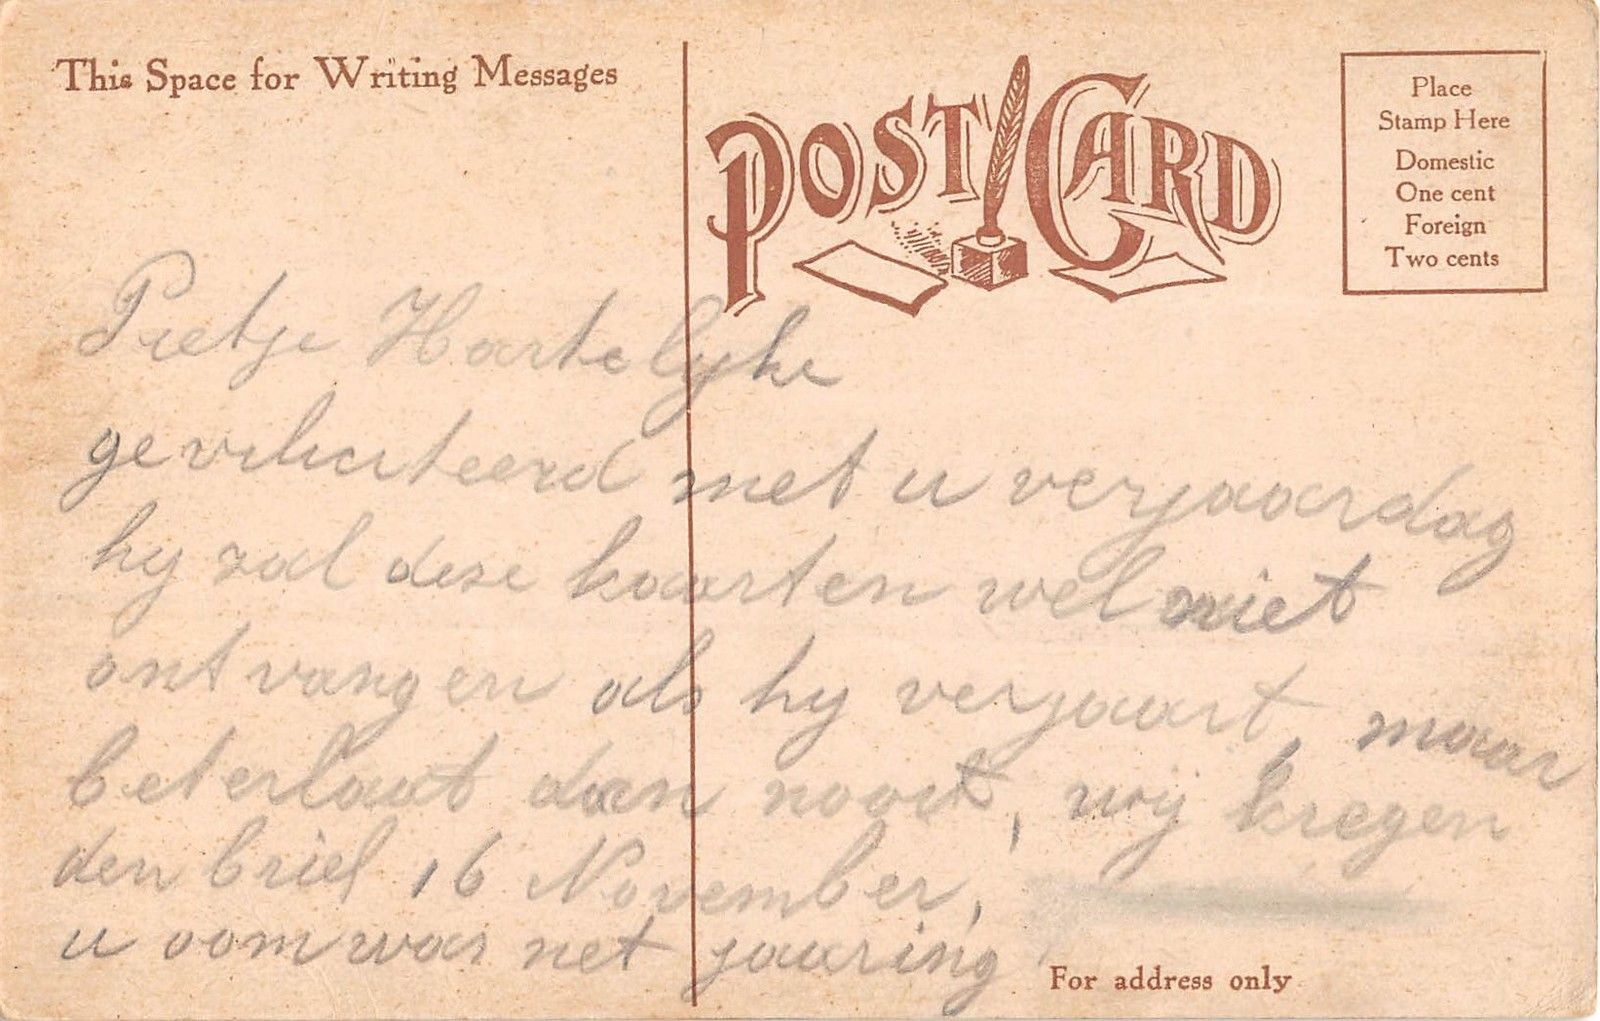 This Space for Writing Messages
POST CARD
Place
Stamp Here
Domestic
One cent
Foreign
Two cents
Pietje Hartelyke
geviliciteerd met u verjaardag
hy zal dese kaarten wel niet
ontvangen als hy verjaart, maar
beterlaat dan nooit, wy kregen
den brief 16 November,
u oom was net jaaring
For address only